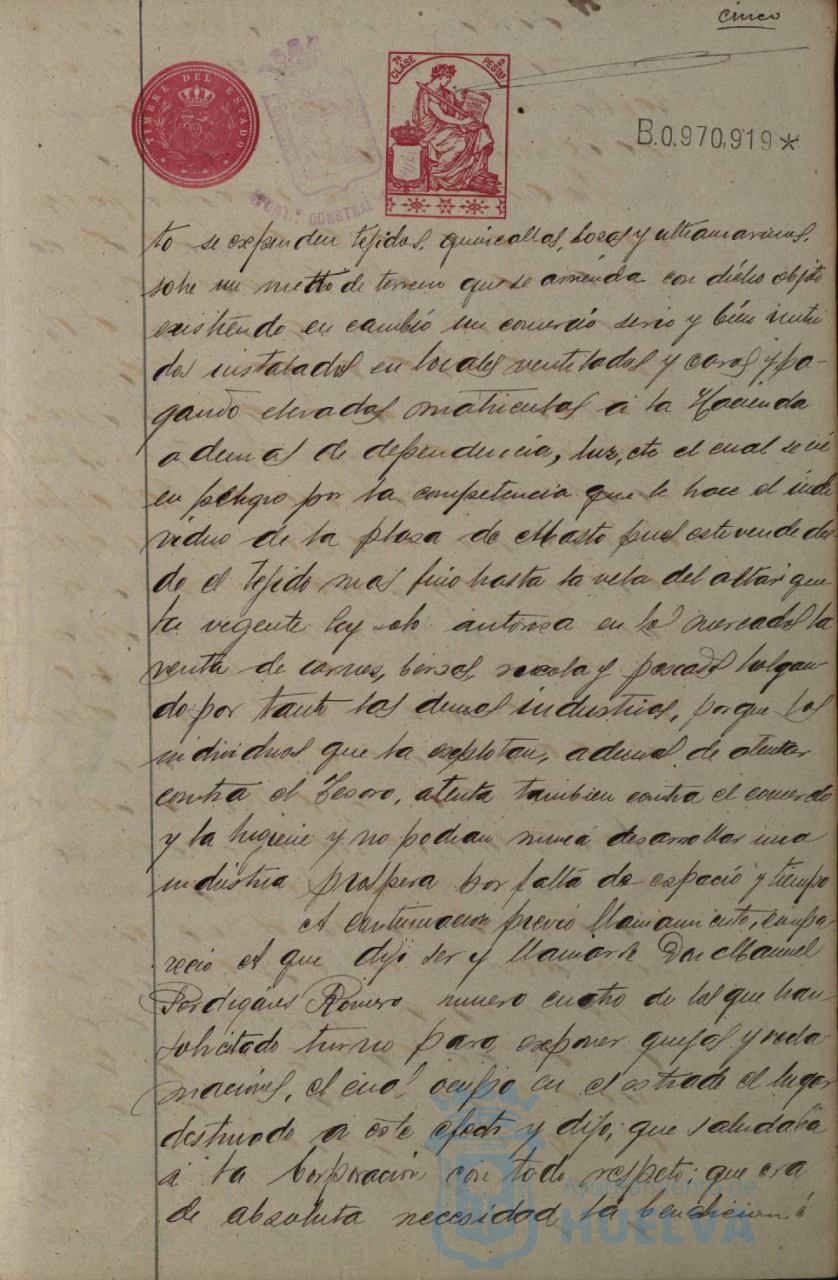 cinco
TIMBRE DEL ESTADO
7ª CLASE 2 PESTAS
B.0,970,919*
to se expenden tejidos, quincallas, Lozas y ultramarinos,
sobre un metro de terreno que se arrienda con dicho objeto
existiendo en cambio un comercio serio y bien surti
dos instalados en locales ventilados y caros y pa-
gando elevadas matriculas a la Hacienda
ademas de dependencia, luz, etc el cual se vé
en peligro por la competencia que le hace el indi
viduo de la plaza de Abasto pues este vende des
de el tejido mas fino hasta la vela del altar que
la vigente ley solo autoriza en los mercados la
venta de carnes, berzas, recoba y pescados holgan-
do por tanto las demas industrias, porque los
individuos que la explotan, ademas de atentar
contra el Tesoro, atenta tambien contra el comercio
y la higiene y no podran nunca desarrollar una
industria prospera por falta de espacio y tiempo
A continuacion previo llamamiento, compa-
recio el que dijo ser y llamarse Don Manuel
Perdigones Romero numero cuatro de los que han
solicitado turno para exponer quejas y recla-
maciones, el cual ocupo en el estrado el lugar
destinado a este efecto y dijo; que saludaba
á la Corporacion con todo respeto; que era
de absoluta necesidad la
Ayuntamiento de
HUELVA